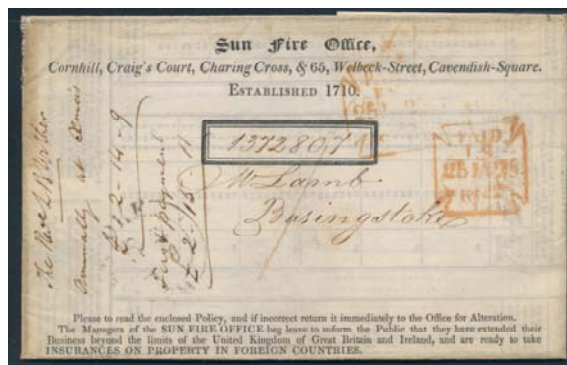 Sun Fire Office,
Cornhill, Craig's Court, Charing Cross, & 65, Welbeck-Street, Cavendish-Square.
ESTABLISHED 1710.
1372807
Mr Lamb
Basingstoke
PAID
25 JA 25
The Rev.
Annually at Xmas
£ 2-14-9
First payment
£ 2-15-11
Please to read the enclosed Policy, and if incorrect return it immediately to the Office for Alteration.
The Managers of the SUN FIRE OFFICE beg leave to inform the Public that they have extended their
Business beyond the limits of the United Kingdom of Great Britain and Ireland, and are ready to take
INSURANCES ON PROPERTY IN FOREIGN COUNTRIES.